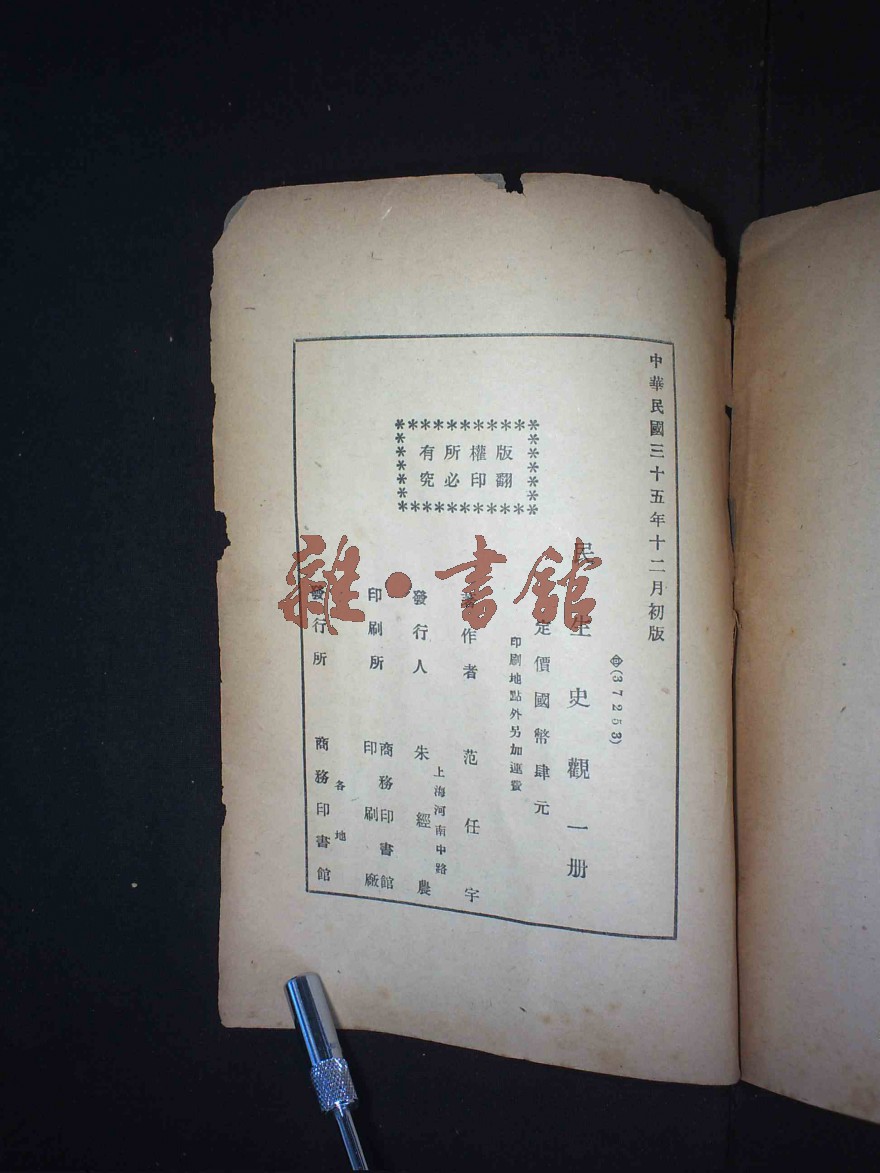 中華民國三十五年十二月初版
(37253)
民生史觀一册
定價國幣肆元
印刷地點外另加運費
著作者 范任宇
上海河南中路
發行人 朱經農
印刷所 商務印書館印刷廠
發行所 各地商務印書館
版權所有
翻印必究
雜·書館